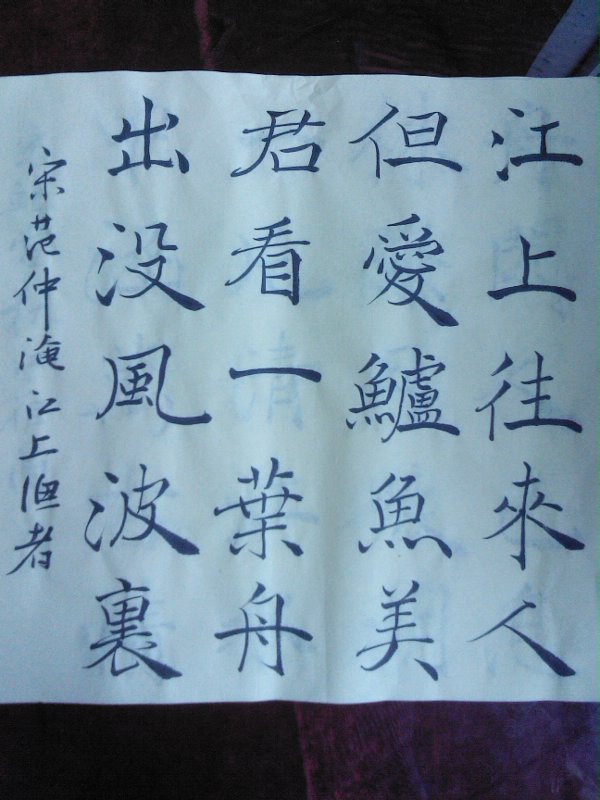 江上往來人
但愛鱸魚美
君看一葉舟
出没風波裏
宋范仲淹江上漁者